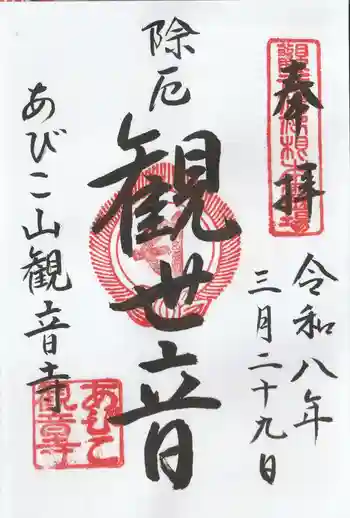 奉拝
令和八年
三月二十九日
除厄
観世音
あびこ山観音寺
あびこ
観音寺